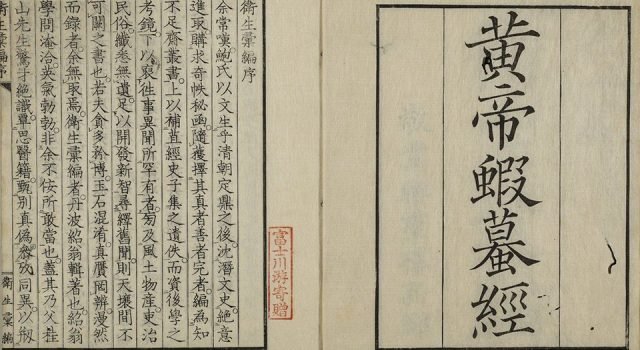 黄帝蝦蟇經
富士川游寄贈
衛生彙編序
余常嘆鮑氏以文生乎清朝定鼎之後沈潛文史絶意
進取購求奇帙秘函隨獲擇其真者善者完者編為知
不足齋叢書上以補苴經史子集之遺佚而資後學之
考鏡下以裒往事異聞所罕有者匄及風土物産吏治
民俗纖巻無遺足以開發新智尋繹舊聞則天壤間不
可闕之書也若夫貪多於博玉石混淆真贋罔辨漫然
而録者余無取焉衛生彙編者丹波紹翁輯著也紹翁
學問淹洽英氣勃勃非余不佞所敢當也蓋其乃父桂
山先生驚才絶識覃思醫籍甄別真偽參攷同異以刱
衛生彙編序
衛生彙編